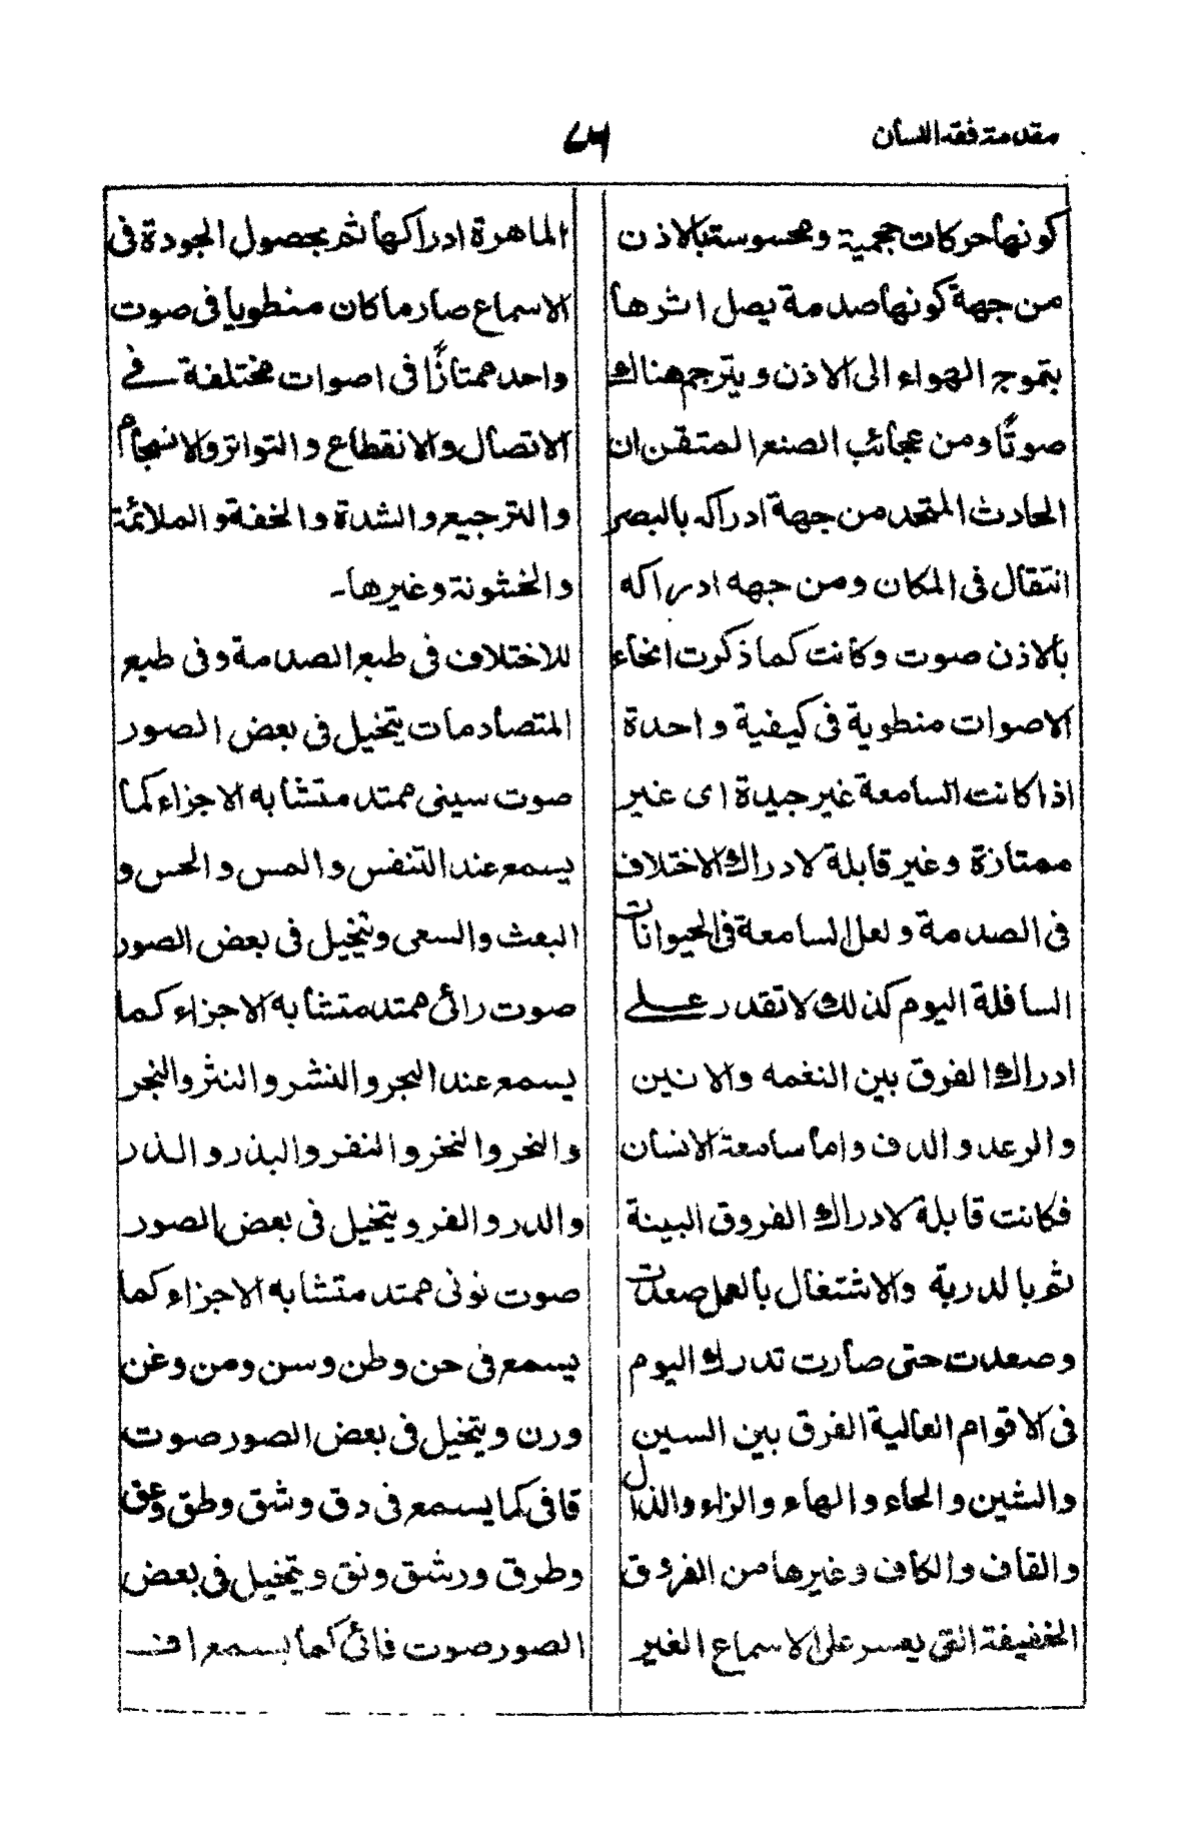 مقدمة فقه اللسان
كونها حركات حجمية ومحسوسة بالاذن
من جهة كونها صدمة يصل اثرها
بتموج الهواء الى الاذن ويترجم هناك
صوتًا ومن عجائب الصنع المتقن ان
الحادث المتحد من جهة ادراكه بالبصر
انتقال فى المكان ومن جهه ادراكه
بالاذن صوت وكانت كما ذكرت انحاء
الاصوات منطوية فى كيفية واحدة
اذا كانت السامعة غير جيدة اى غير
ممتازة وغير قابلة لادراك الاختلاف
فى الصدمة ولعل السامعة فى الحيوانات
السافلة اليوم كذلك لا تقدر على
ادراك الفرق بين النغمه والانين
والرعد والدف واما سامعة الانسان
فكانت قابلة لادراك الفروق البينة
ثم بالدربة والاشتغال بالعمل صعدت
وصعدت حتى صارت تدرك اليوم
فى الاقوام العالية الفرق بين السين
والشين والحاء والهاء والزاء والذال
والقاف والكاف وغيرها من الفروق
الخفيفة التى يعسر على الاسماع الغير
الماهرة ادراكها ثم بحصول الجودة فى
الاسماع صار ما كان منطويا فى صوت
واحد ممتازًا فى اصوات مختلفة فى
الاتصال والانقطاع والتواتر والانسجام
والترجيع والشدة والخفة والملائمة
والخشونة وغيرها۔
للاختلاف فى طبع الصدمة وفى طبع
المتصادمات يتخيل فى بعض الصور
صوت سينى ممتد متشابه الاجزاء كما
يسمع عند التنفس والمس والحس و
البعث والسعى ويتخيل فى بعض الصور
صوت رائى ممتد متشابه الاجزاء كما
يسمع عند البحر والنشر والنثر والنجر
والنحر والنخر والنفر والبذر والذر
والدر والفر ويتخيل فى بعض الصور
صوت نونى ممتد متشابه الاجزاء كما
يسمع فى حن وطن وسن ومن وغن
ورن ويتخيل فى بعض الصور صوت
قافى كما يسمع فى دق وشق وطق وعق
وطرق ورشق ونق ويتخيل فى بعض
الصور صوت فائى كما يسمع اف